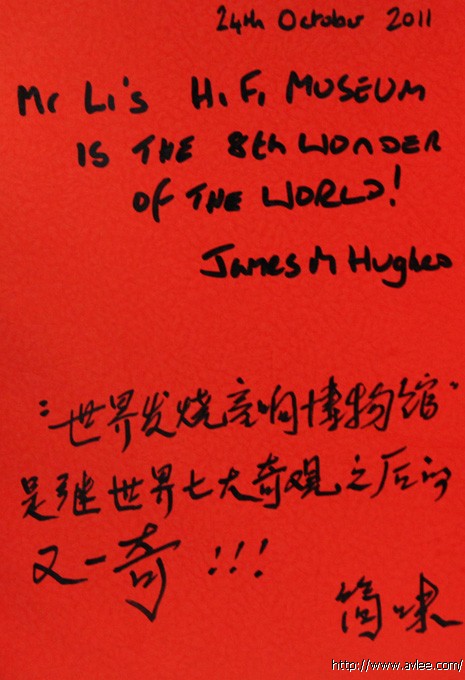 24th October 2011
Mr Li's H.F. MUSEUM
IS THE 8th WONDER
OF THE WORLD!
James M Hughes
"世界发烧音响博物馆"
是继世界七大奇观之后的
又一奇!!!
http://www.avlee.com/